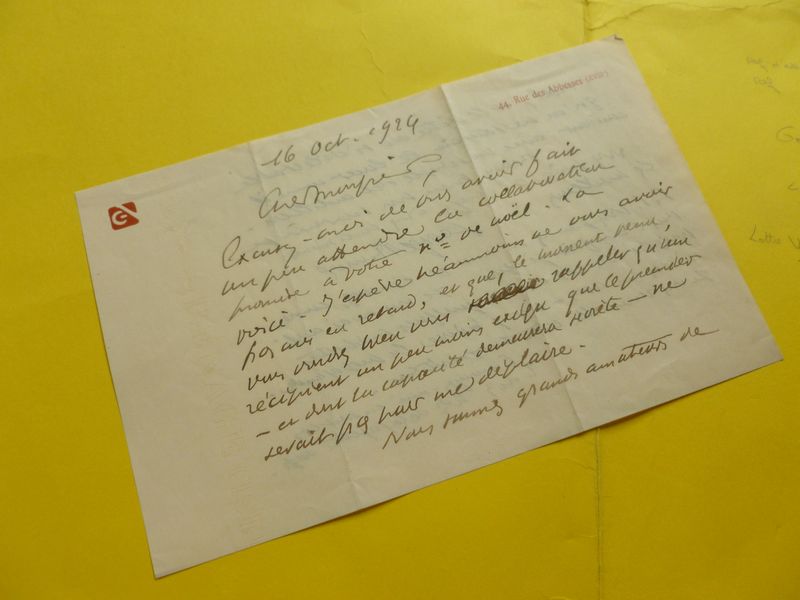 44, Rue des Abbesses (XVIIIe)
16 Oct. 1924
Cher Monsieur,
Excusez-moi de vous avoir fait
un peu attendre la collaboration
promise à votre no de noël. La
voici. J'espère néanmoins ne vous avoir
pas mis en retard, et que, le moment venu,
vous voudrez bien vous rappeler qu'un
récipient un peu moins exigu que le premier
– et dont la capacité demeurera secrète – ne
serait pas pour me déplaire.
Nous sommes grands amateurs de